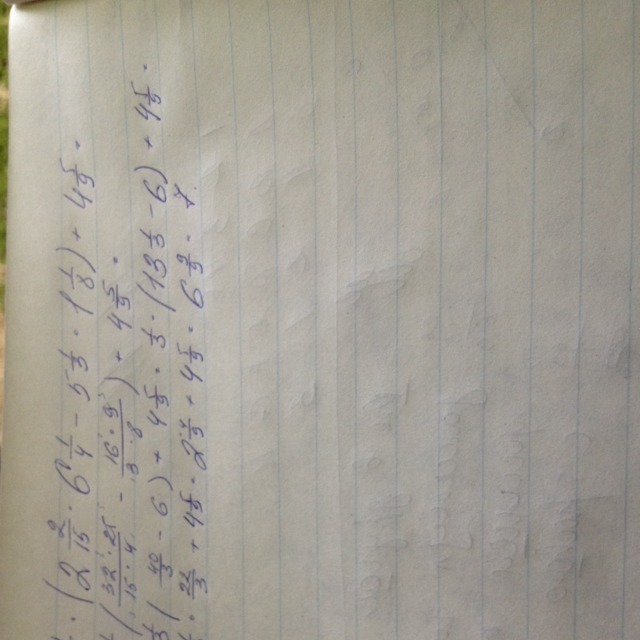 (2 2/15 · 6 1/4 - 5 1/3 · 1 1/8) + 4 5/9 =
(32·25/15·4 - 16·9/3·8) + 4 5/9 =
(40/3 - 6) + 4 5/9 = 1/3 · (13 1/3 - 6) + 4 5/9 =
22/9 + 4 5/9 = 2 4/9 + 4 5/9 = 6 9/9 = 7.